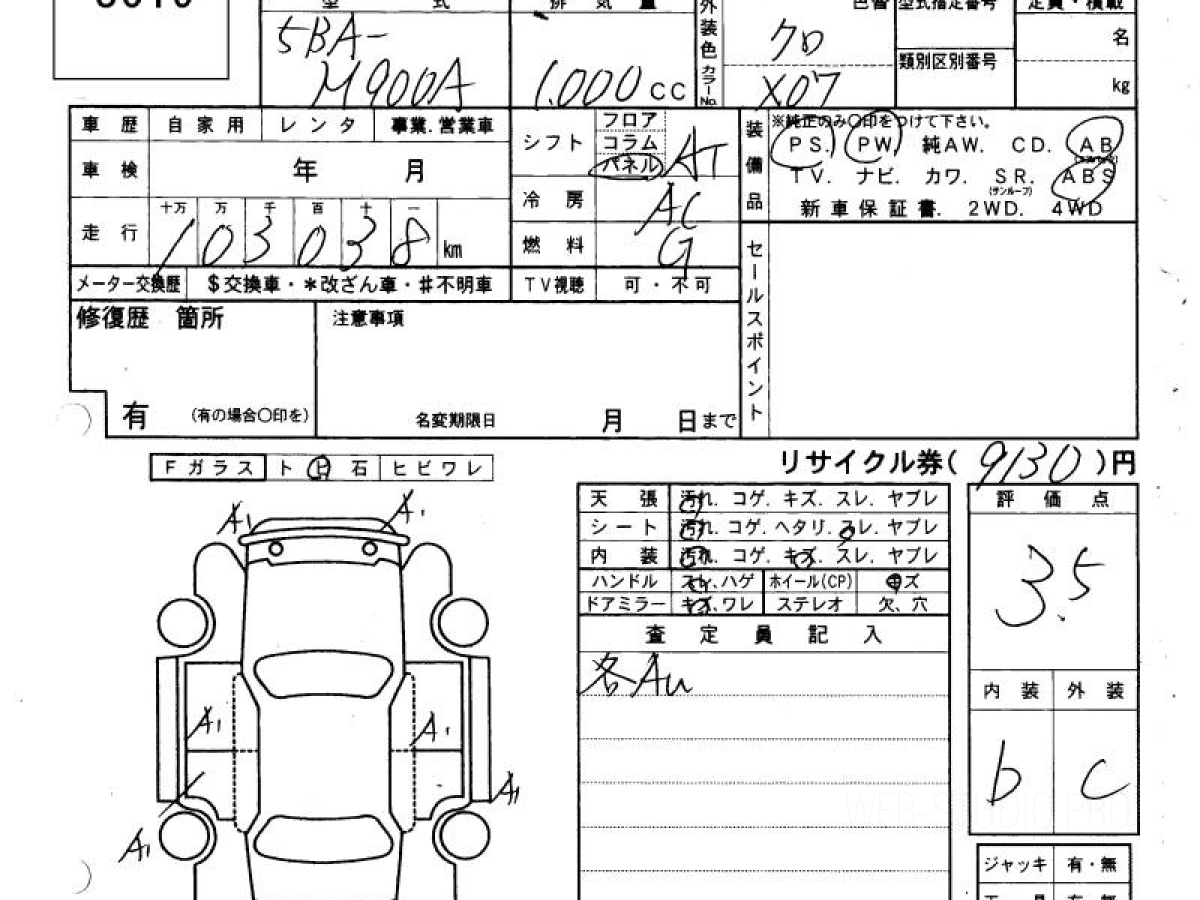 型 式 排 気 量 外装色 カラーNo. 色替 型式指定番号 定員・積載
5BA- クロ 名
M900A 1.000 cc X07 類別区別番号 kg
車 歴 自 家 用 レ ン タ 事業.営業車 シフト フロア コラム パネル AT 装備品 ※純正のみ〇印をつけて下さい。
PS. PW. 純AW. CD. AB
車 検 年 月 TV. ナビ. カワ. SR. ABS
(サンルーフ)
冷 房 AC 新車保証書. 2WD. 4WD
走 行 十万 万 千 百 十 一
103038 km 燃 料 G
メーター交換歴 $交換車・*改ざん車・#不明車 TV視聴 可・不可 セールスポイント
修復歴 箇所 注意事項
有 (有の場合〇印を) 名変期限日 月 日まで
リサイクル券( 9130 )円
Fガラス ト 石 ヒビワレ
天 張 汚れ. コゲ. キズ. スレ. ヤブレ 評 価 点
シート 汚れ. コゲ. ヘタリ. スレ. ヤブレ
内 装 汚れ. コゲ. キズ. スレ. ヤブレ
ハンドル スレ、ハゲ ホイール(CP) キズ
ドアミラー キズ、ワレ ステレオ 欠、穴
3.5
査 定 員 記 入
各AU
内 装 外 装
b c
A1 A1
A1 A1
A1 A1
WEB-STUDIO PRO
ジャッキ 有・無